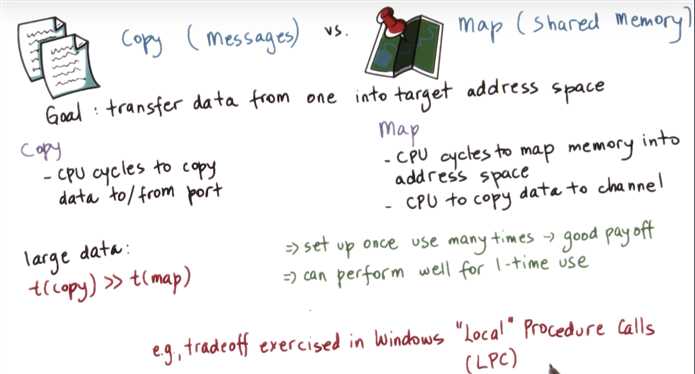 Copy (Messages) vs. Map (Shared Memory)
Goal: transfer data from one into target address space
Copy
- CPU cycles to copy
data to/from port
Map
- CPU cycles to map memory into
address space
- CPU to copy data to channel
large data:
t(copy) >> t(map)
⇒ set up once use many times → good payoff
⇒ can perform well for 1-time use
e.g., tradeoff exercised in Windows "Local" Procedure Calls
(LPC)